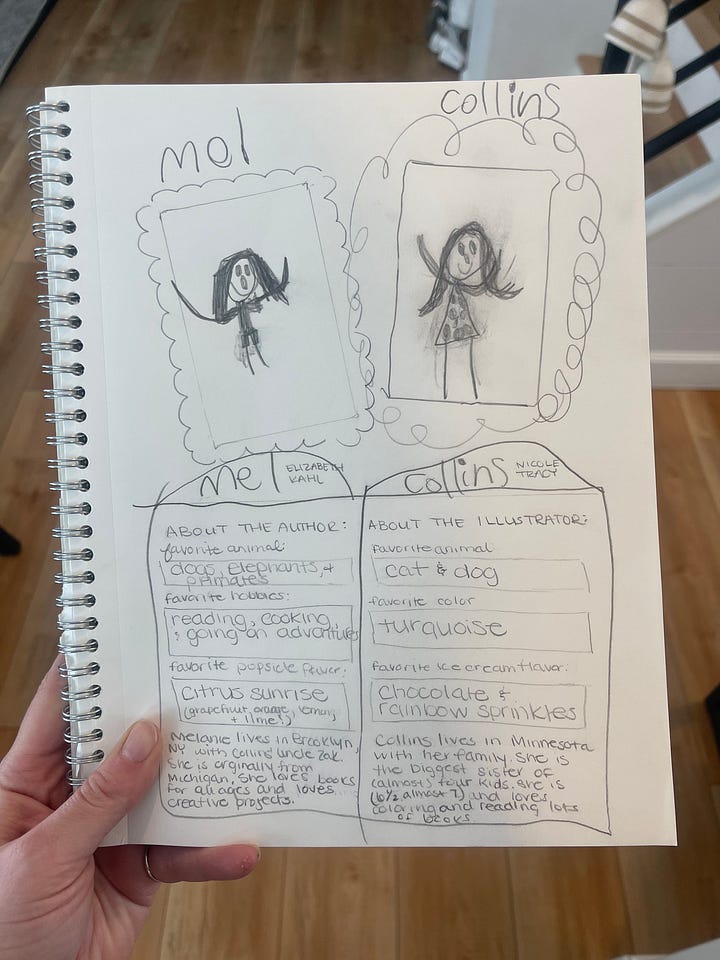 mel
collins
mel ELIZABETH
KAHL
ABOUT THE AUTHOR:
favorite animal:
dogs, elephants, +
primates
favorite hobbies:
reading, cooking,
& going on adventures
favorite popsicle flavor:
citrus sunrise
(grapefruit, orange, lemon,
+ lime!)
Melanie lives in Brooklyn,
NY with Collins' uncle Zak.
She is orginally from
Michigan. She loves books
for all ages and loves
creative projects.
collins NICOLE
TRACY
ABOUT THE ILLUSTRATOR:
favorite animal
cat & dog
favorite color
turquoise
favorite ice cream flavor:
chocolate &
rainbow sprinkles
Collins lives in Minnesota
with her family. She is
the biggest sister of
(almost) four kids. She is
(6 1/2, almost 7) and loves
coloring and reading lots
of books